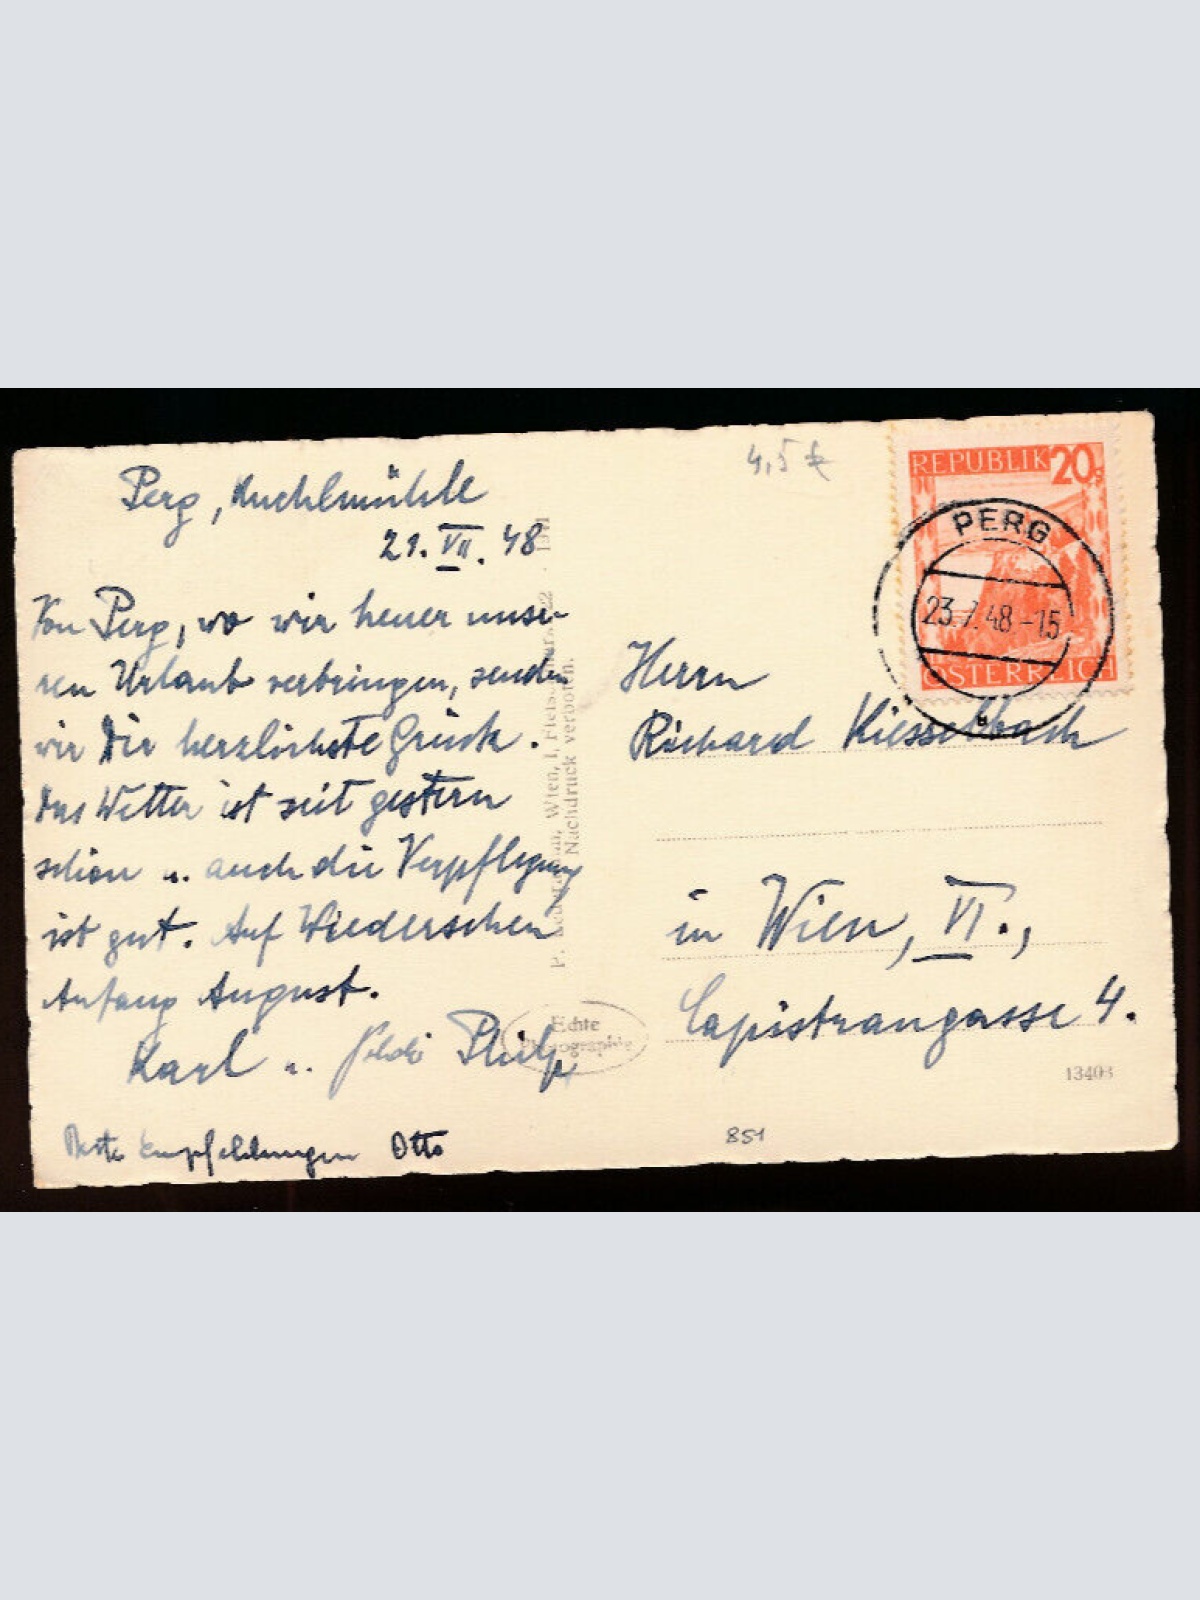 Perg, Kuchlmühle
21. VII. 48
Von Perg, wo wir heuer unse-
ren Urlaub verbringen, senden
wir Dir herzlichste Grüße.
Das Wetter ist seit gestern
schön u. auch die Verpflegung
ist gut. Auf Wiedersehen
Anfang August.
Karl u. Philipp
Beste Empfehlungen Otto
Wien, I,
Nachdruck verboten.
Echte
4,5 €
REPUBLIK 20g
ÖSTERREICH
PERG
23.7.48-15
Herrn
Richard Kiesselbach
in Wien, VI.,
Capistrangasse 4.
13403
851